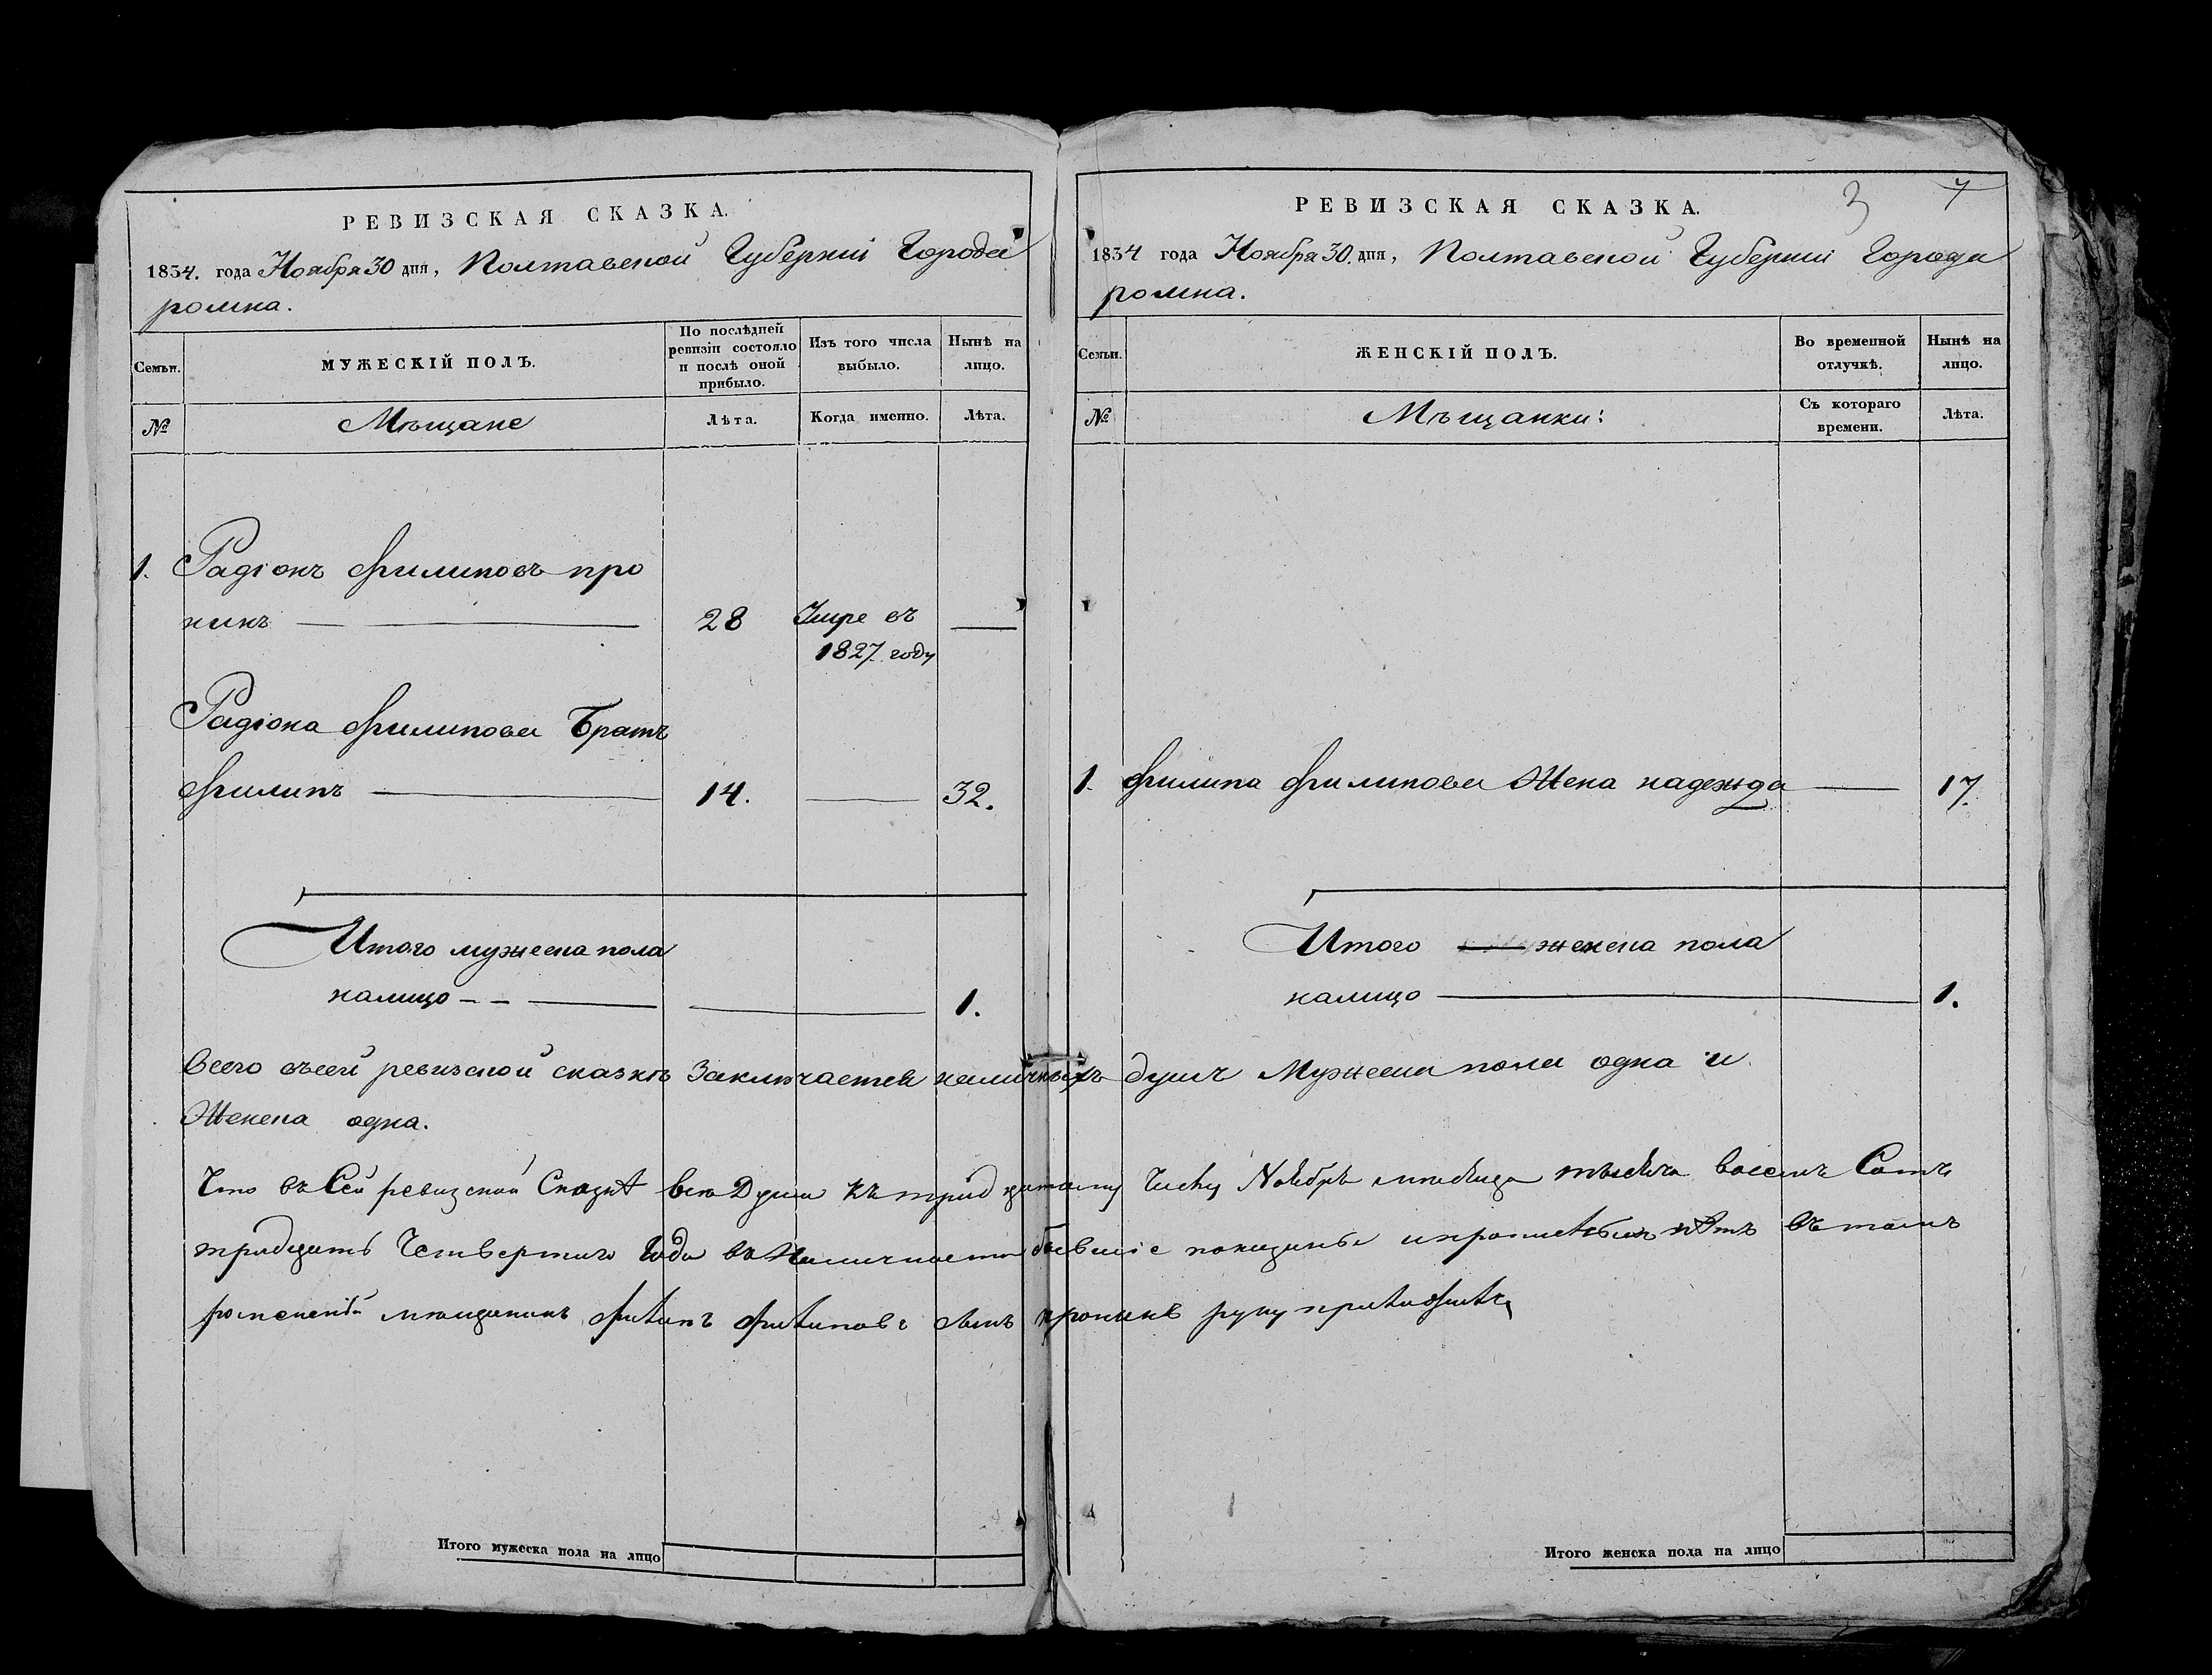 РЕВИЗСКАЯ СКАЗКА.
1834. года Ноября 30 дня, Полтавской Губерніи Города
ромна.
Семьи.
МУЖЕСКІЙ ПОЛЪ.
По послѣдней
ревизіи состояло
и послѣ оной
прибыло.
Изъ того числа
выбыло.
Нынѣ на
лицо.
№
Мѣщане
Лѣта.
Когда именно.
Лѣта.
1. Радіонъ Филиповъ про
нинъ 28 Умре въ
1827. году
Радіона Филипова Братъ
Филипъ 14. 32.
Итого мужеска пола
налицо 1.
РЕВИЗСКАЯ СКАЗКА. 3 7
1834 года Ноября 30. дня, Полтавской Губерніи Города
ромна.
Семьи.
ЖЕНСКІЙ ПОЛЪ.
Во временной
отлучкѣ.
Нынѣ на
лицо.
№
Мѣщанки:
Съ котораго
времени.
Лѣта.
1. Филипа Филипова Жена надежда 17.
Итого женска пола
налицо 1.
Всего въсей ревизской сказкѣ Заключается наличныхъ душъ Мужеска пола одна и
Женска одна.
Что въ Сей ревизской Сказкѣ всѣ Души къ тридцатому Числу Ноября тысяча восемъ Сотъ
тридцать Четвертаго Года въ показаны нѣтъ въ томъ
роменскій мѣщанинъ Филипъ Филиповъ сынъ пронинъ руку приложилъ
Итого мужеска пола на лицо
Итого женска пола на лицо